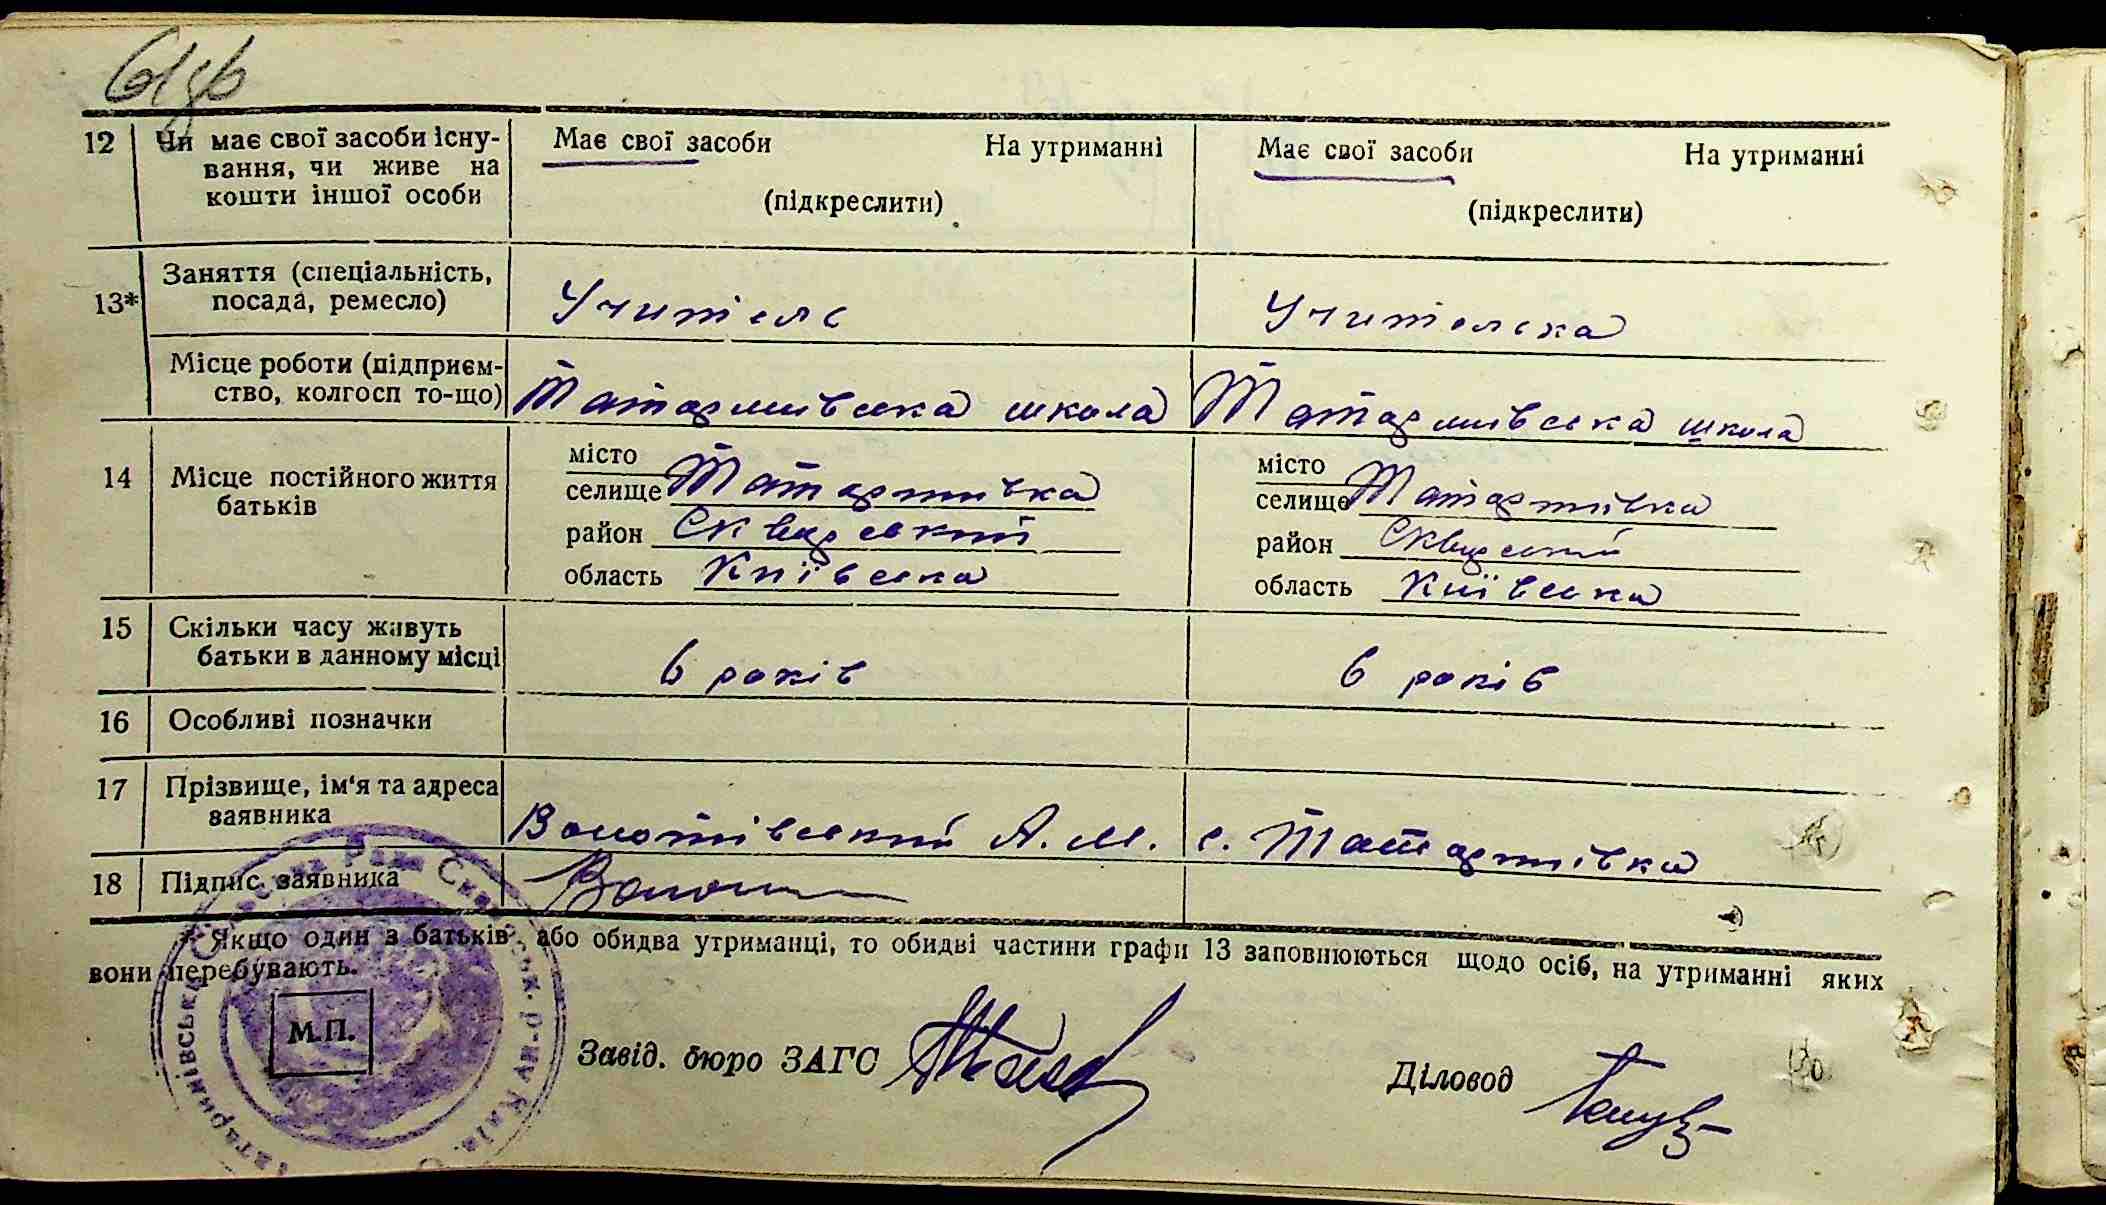 12 Чи має свої засоби існу- Має свої засоби На утриманні Має свої засоби На утриманні
вання, чи живе на
кошти іншої особи (підкреслити) (підкреслити)
13* Заняття (спеціальність,
посада, ремесло) Учитель Учителька
Місце роботи (підприєм-
ство, колгосп то-що) Татаринівська школа Татаринівська школа
14 Місце постійного життя
батьків
місто місто
селище Татаринівка селище Татаринівка
район Сквирський район Сквирський
область Київська область Київська
15 Скільки часу живуть
батьки в данному місці 6 років 6 років
16 Особливі позначки
17 Прізвище, ім'я та адреса
заявника А. М. с. Татаринівка
18 Підпис заявника
* Якщо один з батьків або обидва утриманці, то обидві частини графи 13 заповнюються щодо осіб, на утриманні яких
вони перебувають.
М.П.
Завід. бюро ЗАГС Діловод